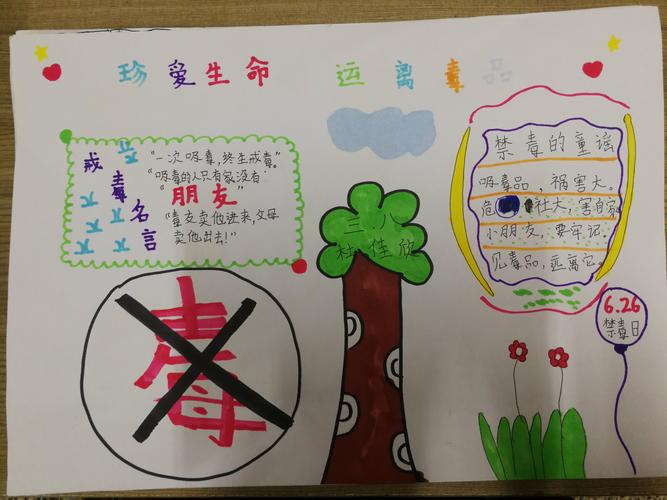 珍爱生命 运离毒品
戒毒名言
"一次吸毒,终生戒毒。"
"吸毒的人只有家没有
"朋友"
"毒友卖他进来,父母
卖他出去!"
三八
杜佳欣
禁毒的童谣
吸毒品,祸害大。
危社大,害自家
小朋友,要牢记。
见毒品,远离它。
6.26
禁毒日
毒